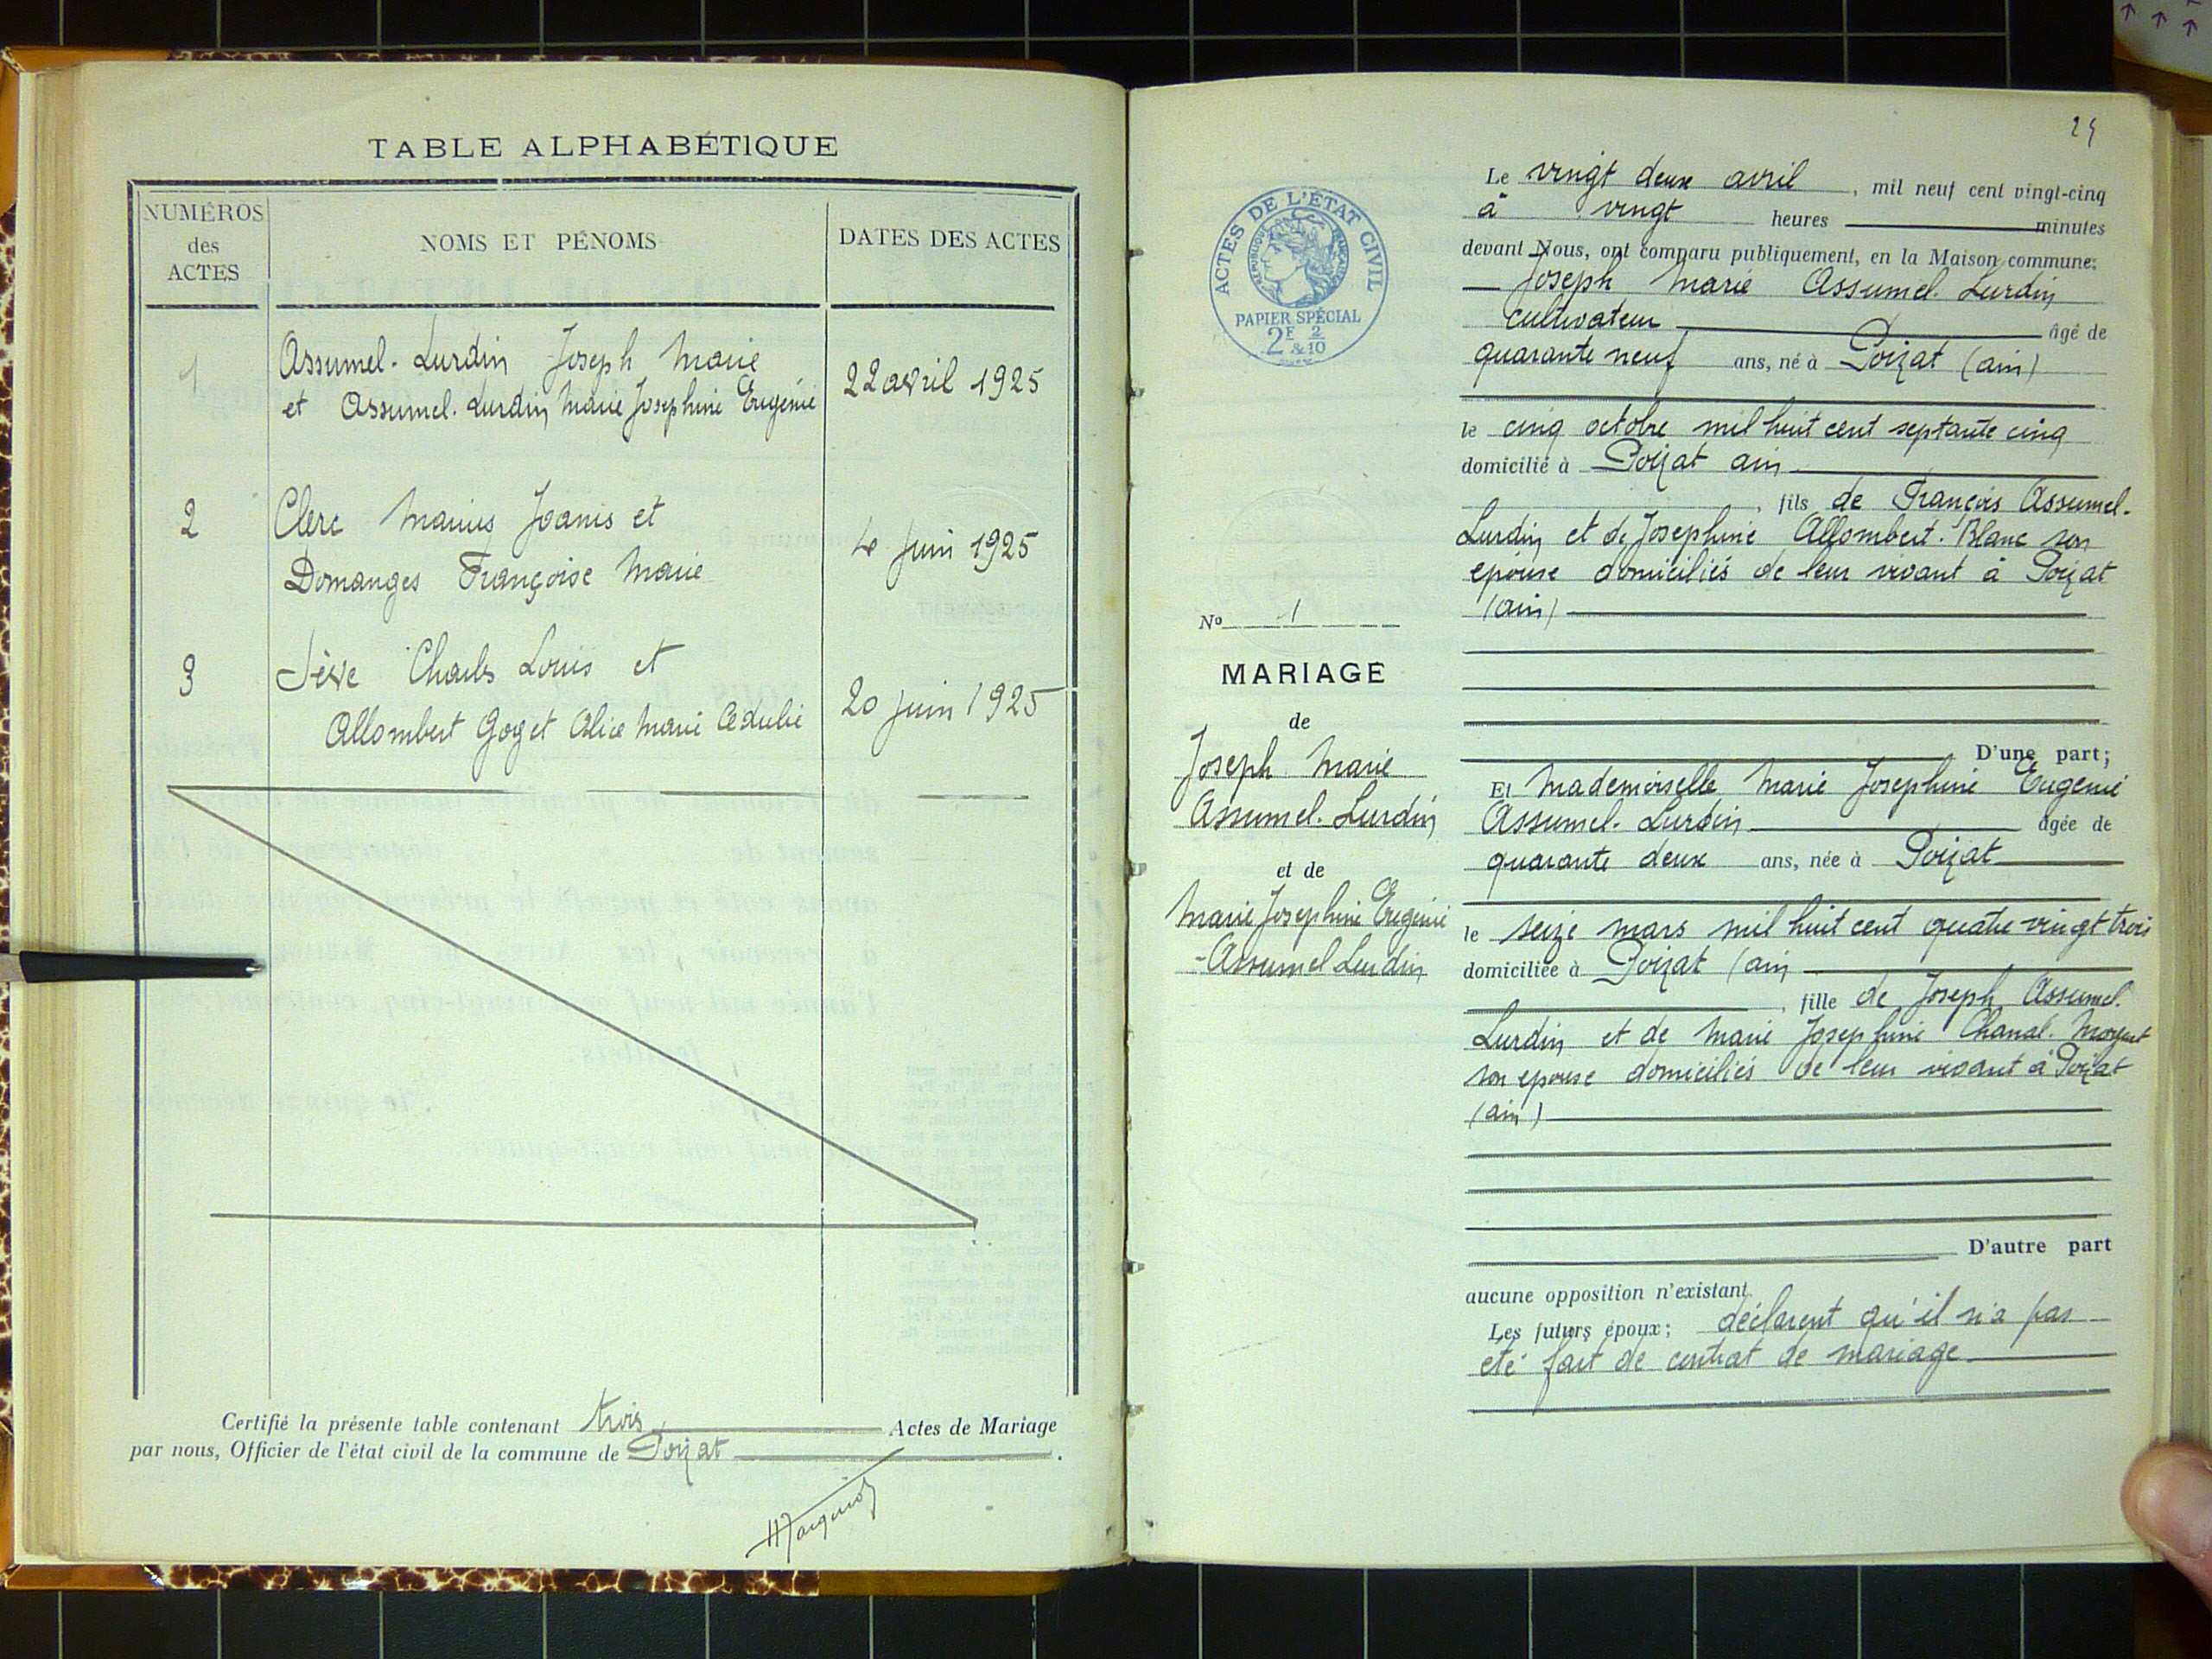 TABLE ALPHABÉTIQUE
NUMÉROS
des
ACTES
NOMS ET PÉNOMS
DATES DES ACTES
1
Assumel-Lurdin Joseph Marie
et Assumel-Lurdin Marie Josephine Eugénie
22 avril 1925
2
Clerc Marius Joanis et
Domanges Françoise Marie
4 Juin 1925
3
Sève Charles Louis et
Allombert Goget Alice Marie
20 juin 1925
Certifié la présente table contenant trois Actes de Mariage
par nous, Officier de l'état civil de la commune de Poizat.
ACTES DE L'ÉTAT CIVIL
PAPIER SPÉCIAL
2F 2
& 10
No 1
MARIAGE
de
Joseph Marie
Assumel-Lurdin
et de
Marie Josephine Eugénie
-Assumel Lurdin
Le vingt deux avril, mil neuf cent vingt-cinq
à vingt heures minutes
devant Nous, ont comparu publiquement, en la Maison commune:
Joseph Marie Assumel-Lurdin
cultivateur âgé de
quarante neuf ans, né à Poizat (ain)
le cinq octobre mil huit cent septante cinq
domicilié à Poizat ain
, fils de François Assumel-
Lurdin et de Josephine Allombert-Blanc son
épouse domiciliés de leur vivant à Poizat
(ain)
D'une part;
Et Mademoiselle Marie Josephine Eugenie
Assumel-Lurdin âgée de
quarante deux ans, née à Poizat
le seize mars mil huit cent quatre vingt trois
domiciliée à Poizat (ain
, fille de Joseph Assumel-
Lurdin et de Marie Josephine Chanal-
son epouse domiciliés de leur vivant à Poizat
(ain)
D'autre part
aucune opposition n'existant.
Les futurs époux; déclarent qu'il n'a pas
été fait de contrat de mariage